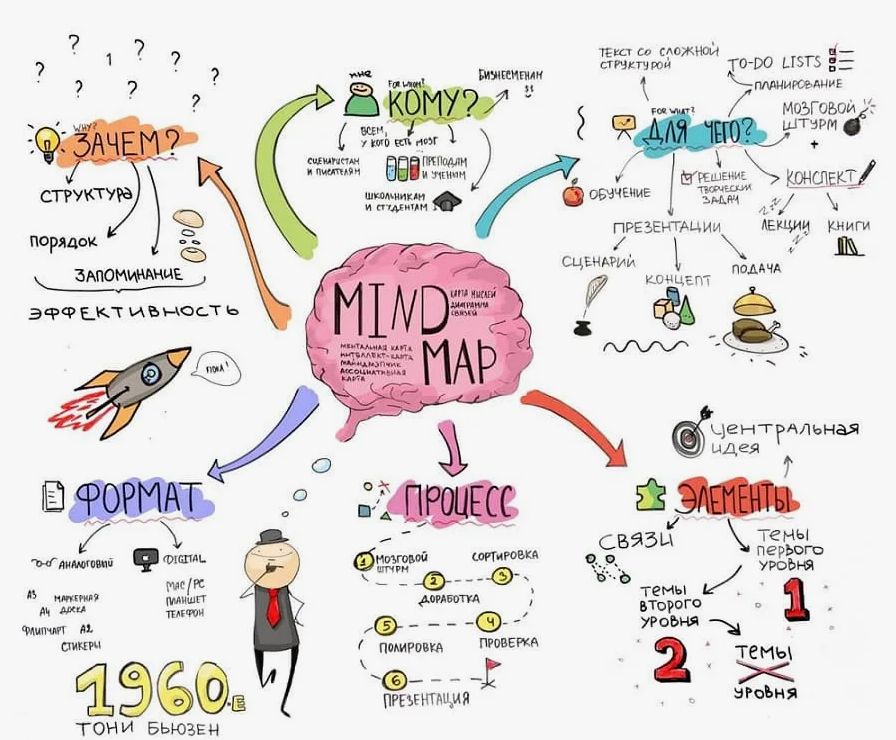 ? ? 1 ? ? ? ? ? ?
WHY?
ЗАЧЕМ?
СТРУКТУРА
ПОРЯДОК
ЗАПОМИНАНИЕ
ЭФФЕКТИВНОСТЬ
ПОКА!
МНЕ
FOR WHOM?
КОМУ?
БИЗНЕСМЕНАМ
$$
ВСЕМ,
У КОГО ЕСТЬ МОЗГ
СЦЕНАРИСТАМ
И ПИСАТЕЛЯМ
ПРЕПОДАМ
И УЧЕНЫМ
ШКОЛЬНИКАМ
И СТУДЕНТАМ
ТЕКСТ СО СЛОЖНОЙ
СТРУКТУРОЙ
TO-DO LISTS
ПЛАНИРОВАНИЕ
FOR WHAT?
ДЛЯ ЧЕГО?
МОЗГОВОЙ
ШТУРМ
+
КОНСПЕКТ
ЛЕКЦИИ
ZZZ
ZZZ
КНИГИ
ОБУЧЕНИЕ
РЕШЕНИЕ
ТВОРЧЕСКИХ
ЗАДАЧ
ПРЕЗЕНТАЦИИ
СЦЕНАРИЙ
КОНЦЕПТ
ПОДАЧА
MIND
MAP
КАРТА МЫСЛЕЙ
ДИАГРАММА
СВЯЗЕЙ
МЕНТАЛЬНАЯ КАРТА
ИНТЕЛЛЕКТ-КАРТА
МАЙНДМЭПЧИК
АССОЦИАТИВНАЯ
КАРТА
ФОРМАТ
АНАЛОГОВИЙ
А3
МАРКЕРНАЯ
ДОСКА
А4
ФЛИПЧАРТ А2
СТИКЕРЫ
DIGITAL
MAC/PC
ПЛАНШЕТ
ТЕЛЕФОН
1960.Е
ТОНИ БЬЮЗЕН
ПРОЦЕСС
1 МОЗГОВОЙ
ШТУРМ
2
ДОРАБОТКА
СОРТИРОВКА
3
4
ПРОВЕРКА
5
ПОЛИРОВКА
6
ПРЕЗЕНТАЦИЯ
ЦЕНТРАЛЬНАЯ
ИДЕЯ
ЭЛЕМЕНТЫ
СВЯЗИ
ТЕМЫ
ПЕРВОГО
УРОВНЯ
1
ТЕМЫ
ВТОРОГО
УРОВНЯ
2
ТЕМЫ
X
УРОВНЯ